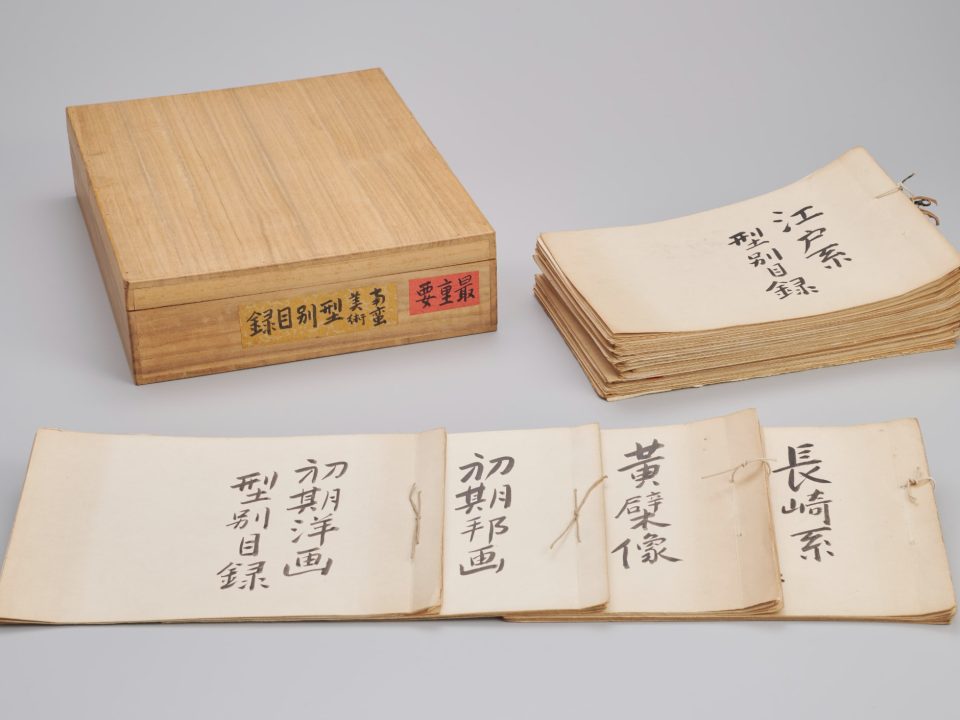 最重要
南蛮
美術
型別目録
江戸系
型別目録
初期洋画
型別目録
初期邦画
黄檗像
長崎系